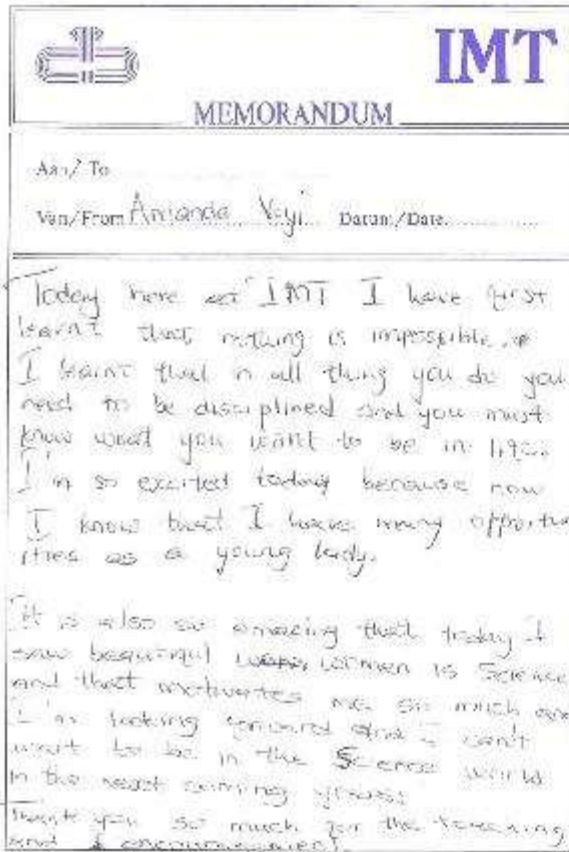 IMT
MEMORANDUM
Aan/ To
Van/From Amanda Voyi Datum/Date
Today here at IMT I have first
learnt that nothing is impossible.
I learnt that in all thing you do you
need to be disciplined and you must
know what you want to be in life.
I'm so excited today because now
I know that I have many opportun
ities as a young lady.
It is also so amazing that today I
saw beautiful women is Science
and that motivates me so much and
I'm looking forward and I can't
wait to be in the Science world
in the next coming years.
Thank you so much for the teaching
and encouragement.